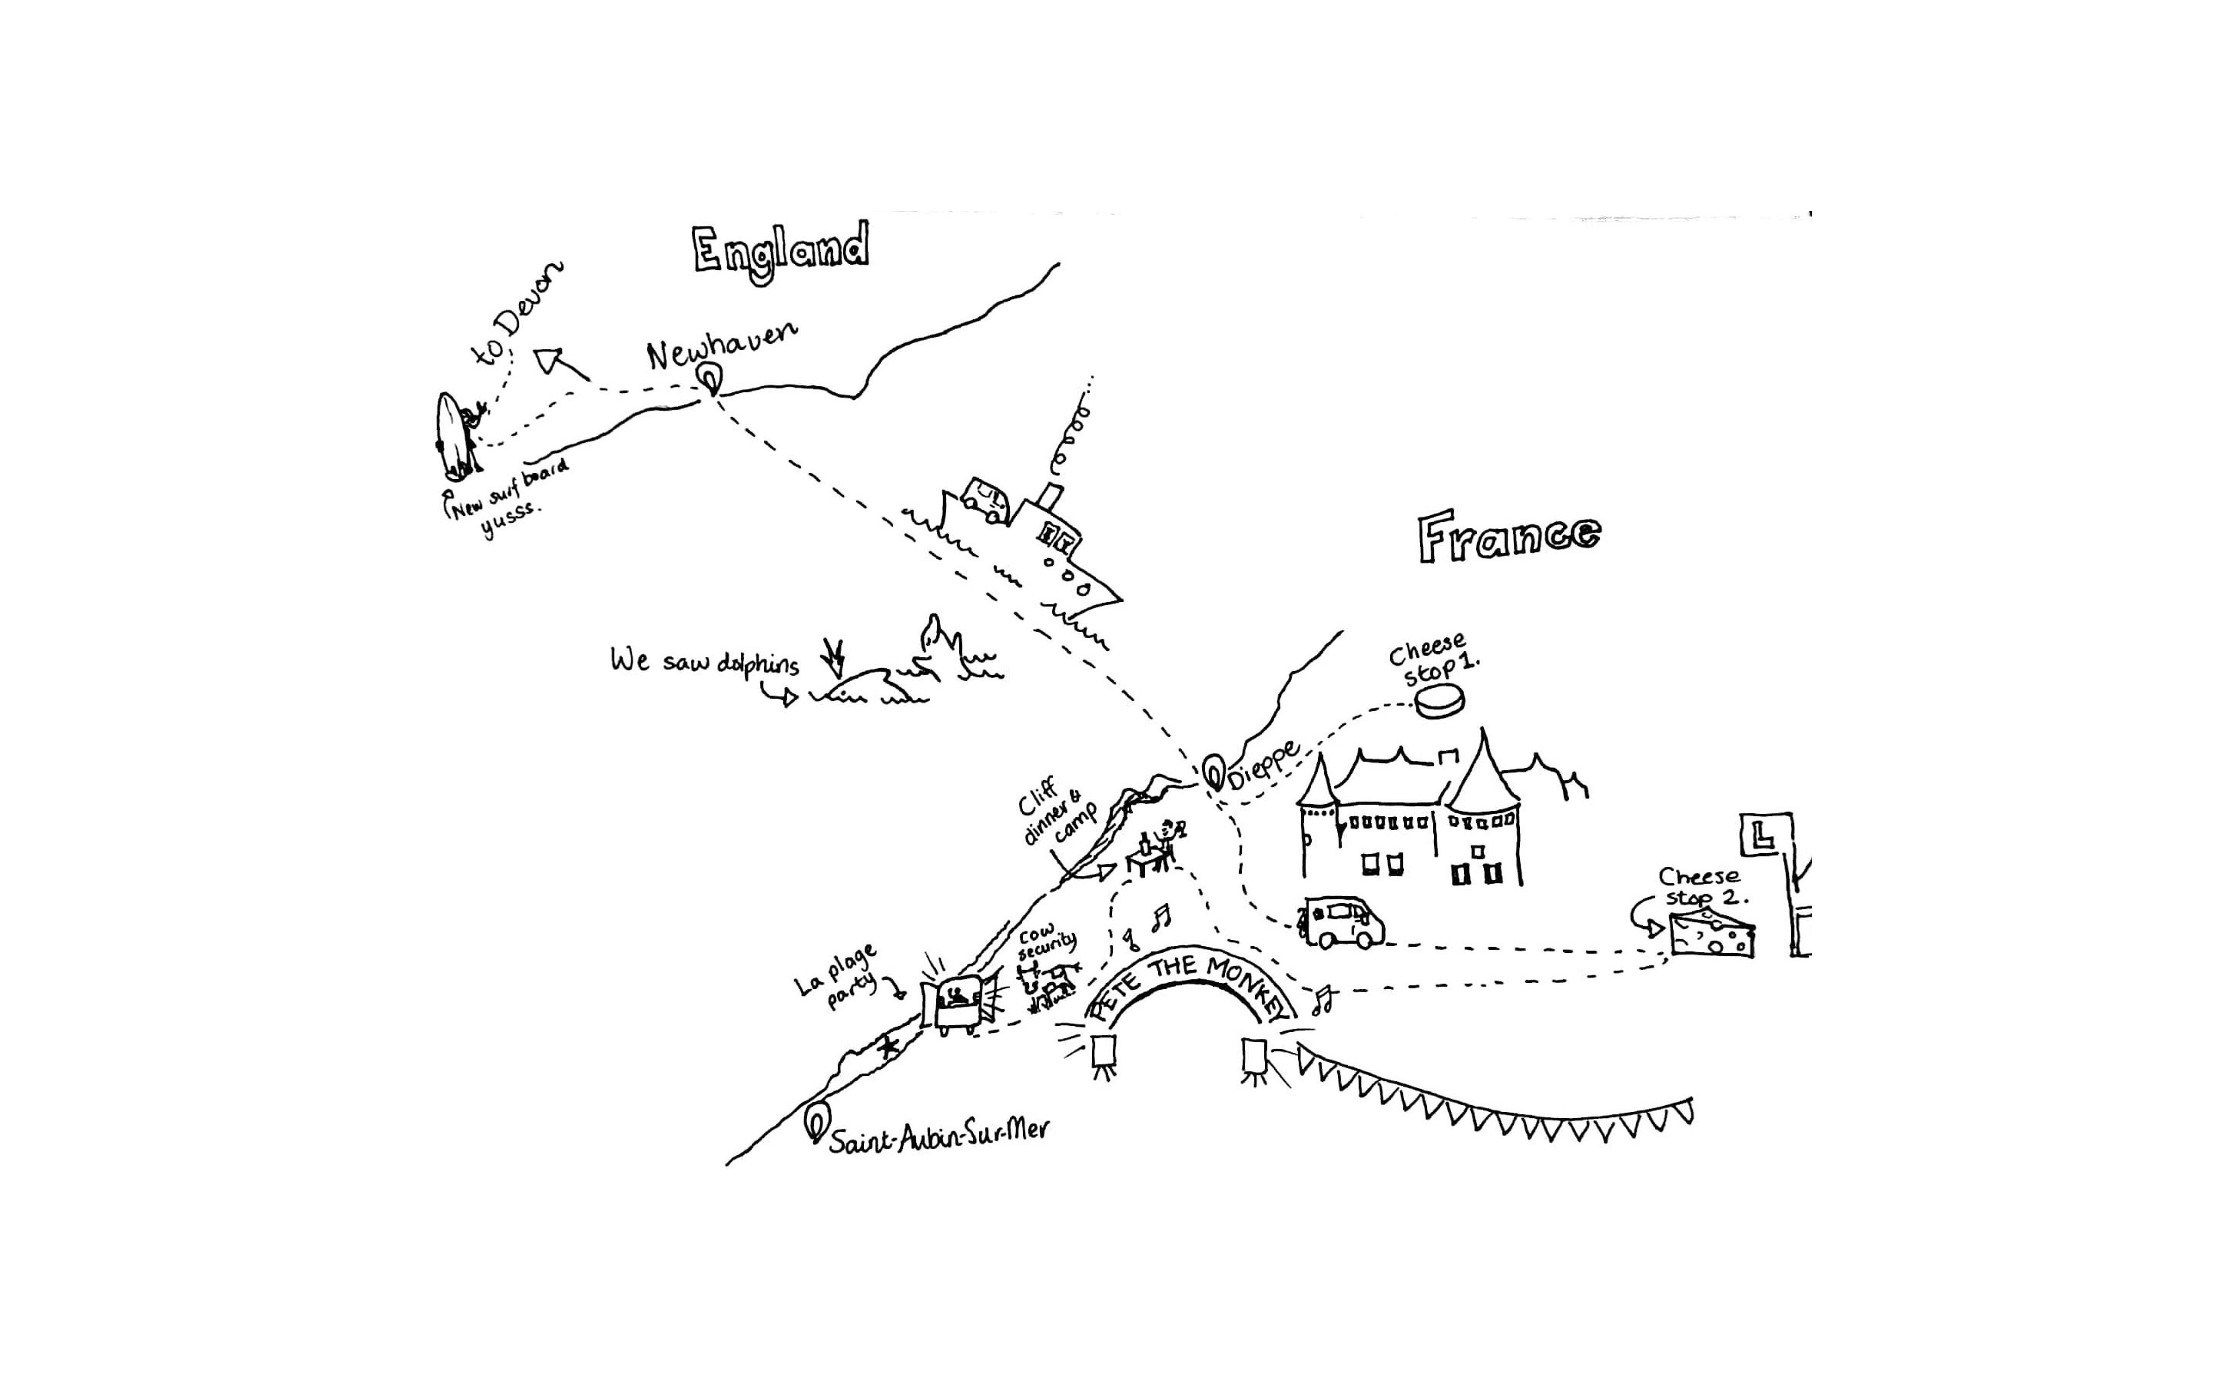 England
to Devon
Newhaven
New surf board
yusss.
France
We saw dolphins
Cheese
stop 1.
Dieppe
Cliff
dinner &
camp
L
Cheese
stop 2.
Cow
security
La plage
party
PETE THE MONKEY
Saint-Aubin-Sur-Mer